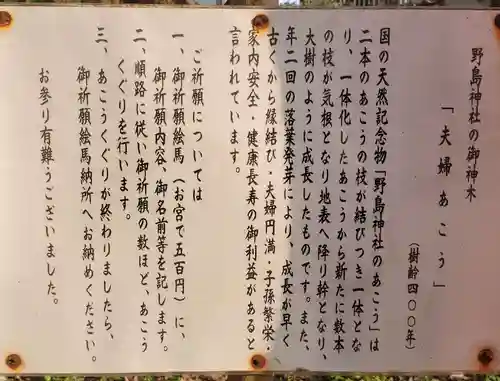 野島神社の御神木
「夫婦あこう」
(樹齢四〇〇年)
国の天然記念物「野島神社のあこう」は
二本のあこうの枝が結びつき一体とな
り、一体化したあこうから新たに数本
の枝が気根となり地表へ降り幹となり、
大樹のように成長したものです。また、
年二回の落葉発芽により、成長が早く
古くから縁結び・夫婦円満・子孫繁栄・
家内安全・健康長寿の御利益があると
言われています。
ご祈願については
一、御祈願絵馬(お宮で五百円)に、
御祈願内容・御名前等を記します。
二、順路に従い御祈願の数ほど、あこう
くぐりを行います。
三、あこうくぐりが終わりましたら、
御祈願絵馬納所へお納めください。
お参り有難うございました。